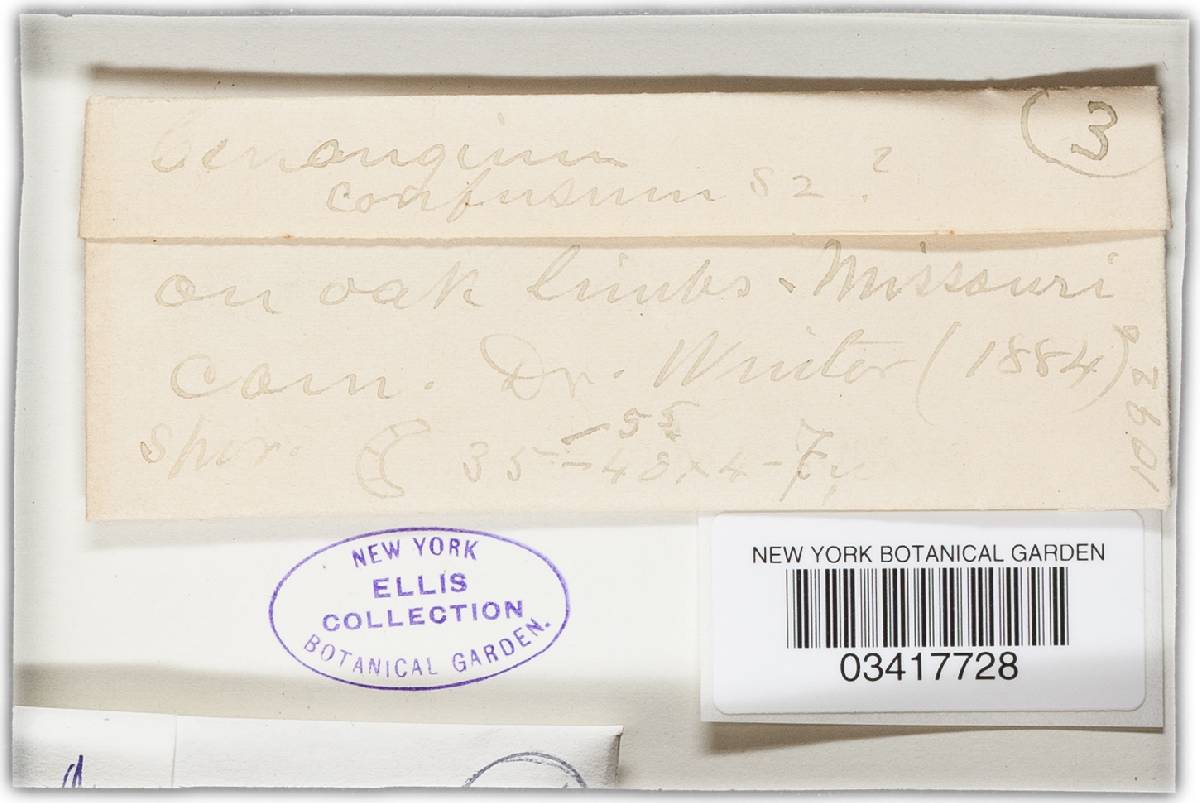 Cenangium
confusum Sz ?
3
on oak limbs - Missouri
com. Dr. Winter (1884)
-55
spor. 35-43x4-7
NEW YORK
ELLIS
COLLECTION
BOTANICAL GARDEN.
NEW YORK BOTANICAL GARDEN
03417728